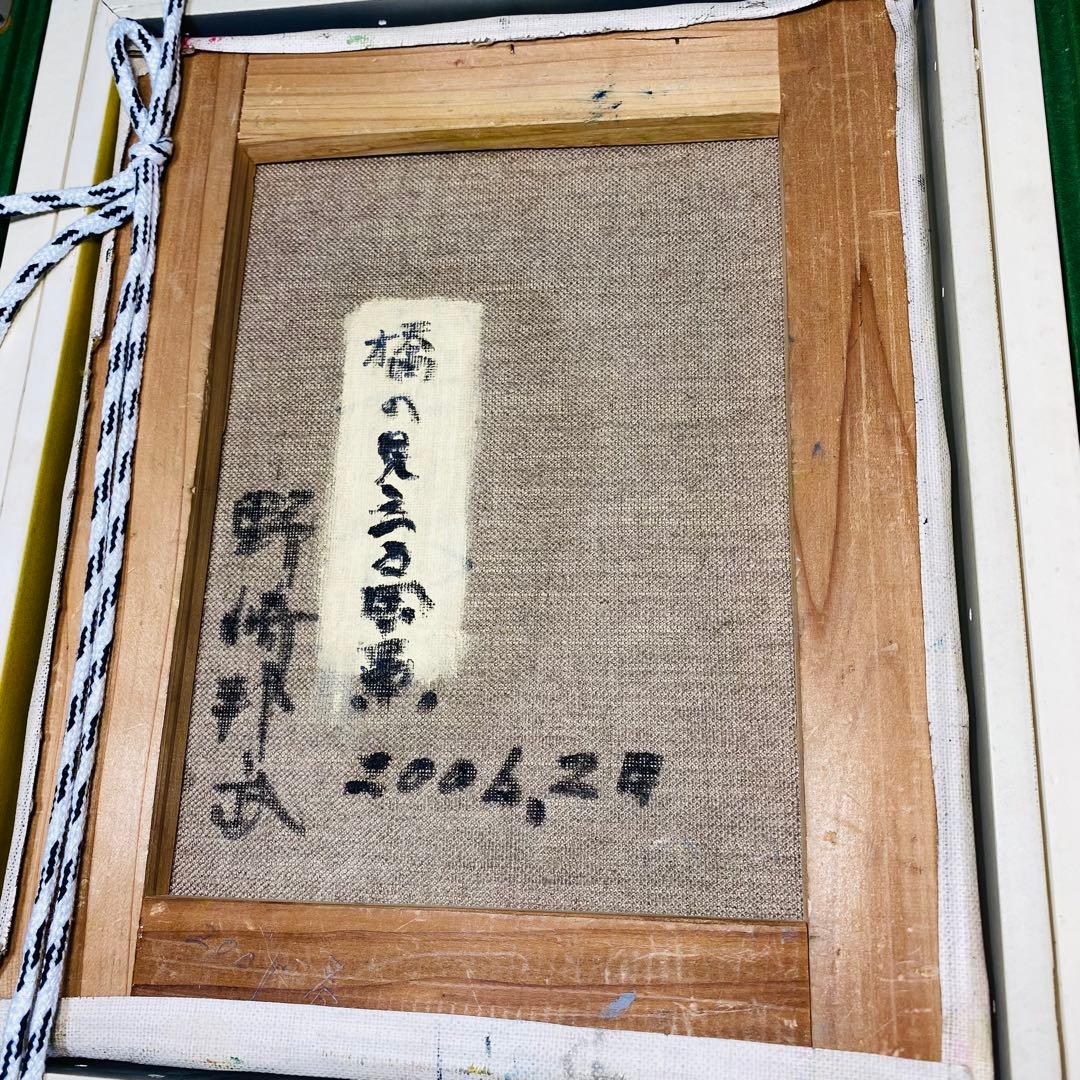 橋の見える風景.
野崎邦武
2006.2月